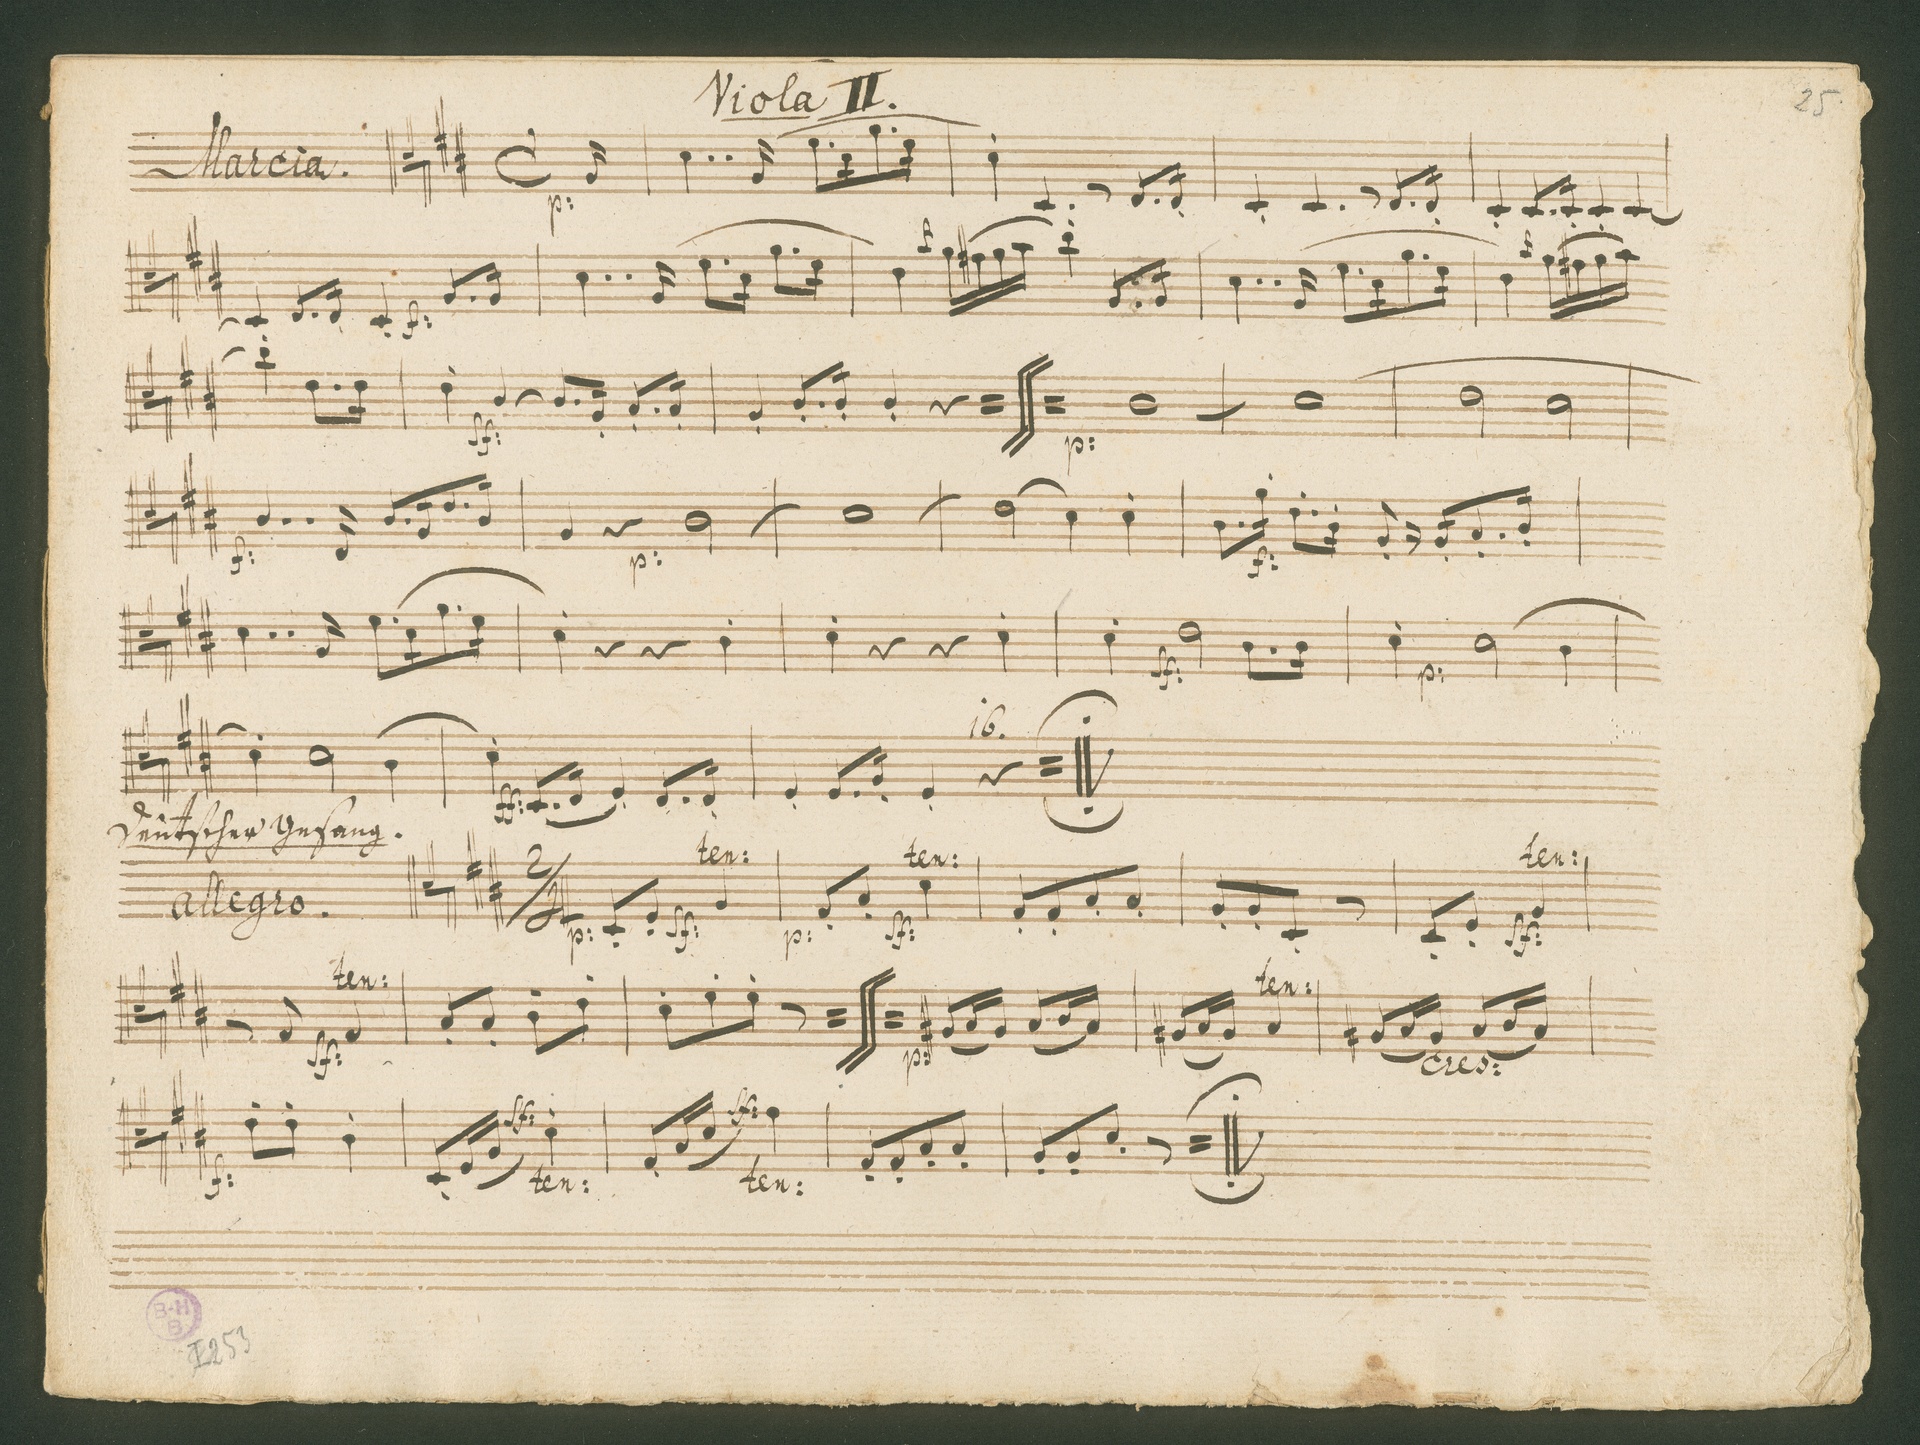 Viola II.
25.
Marcia.
p:
f:
sf:
p:
f:
p:
f:
sf:
p:
16.
ff:
Deutscher Gesang.
allegro.
2/4
ten:
ten:
ten:
p:
sf:
p:
sf:
sf:
ten:
ten:
sf:
p:
cres:
sf:
sf:
f:
ten:
ten:
B-H
B
I253